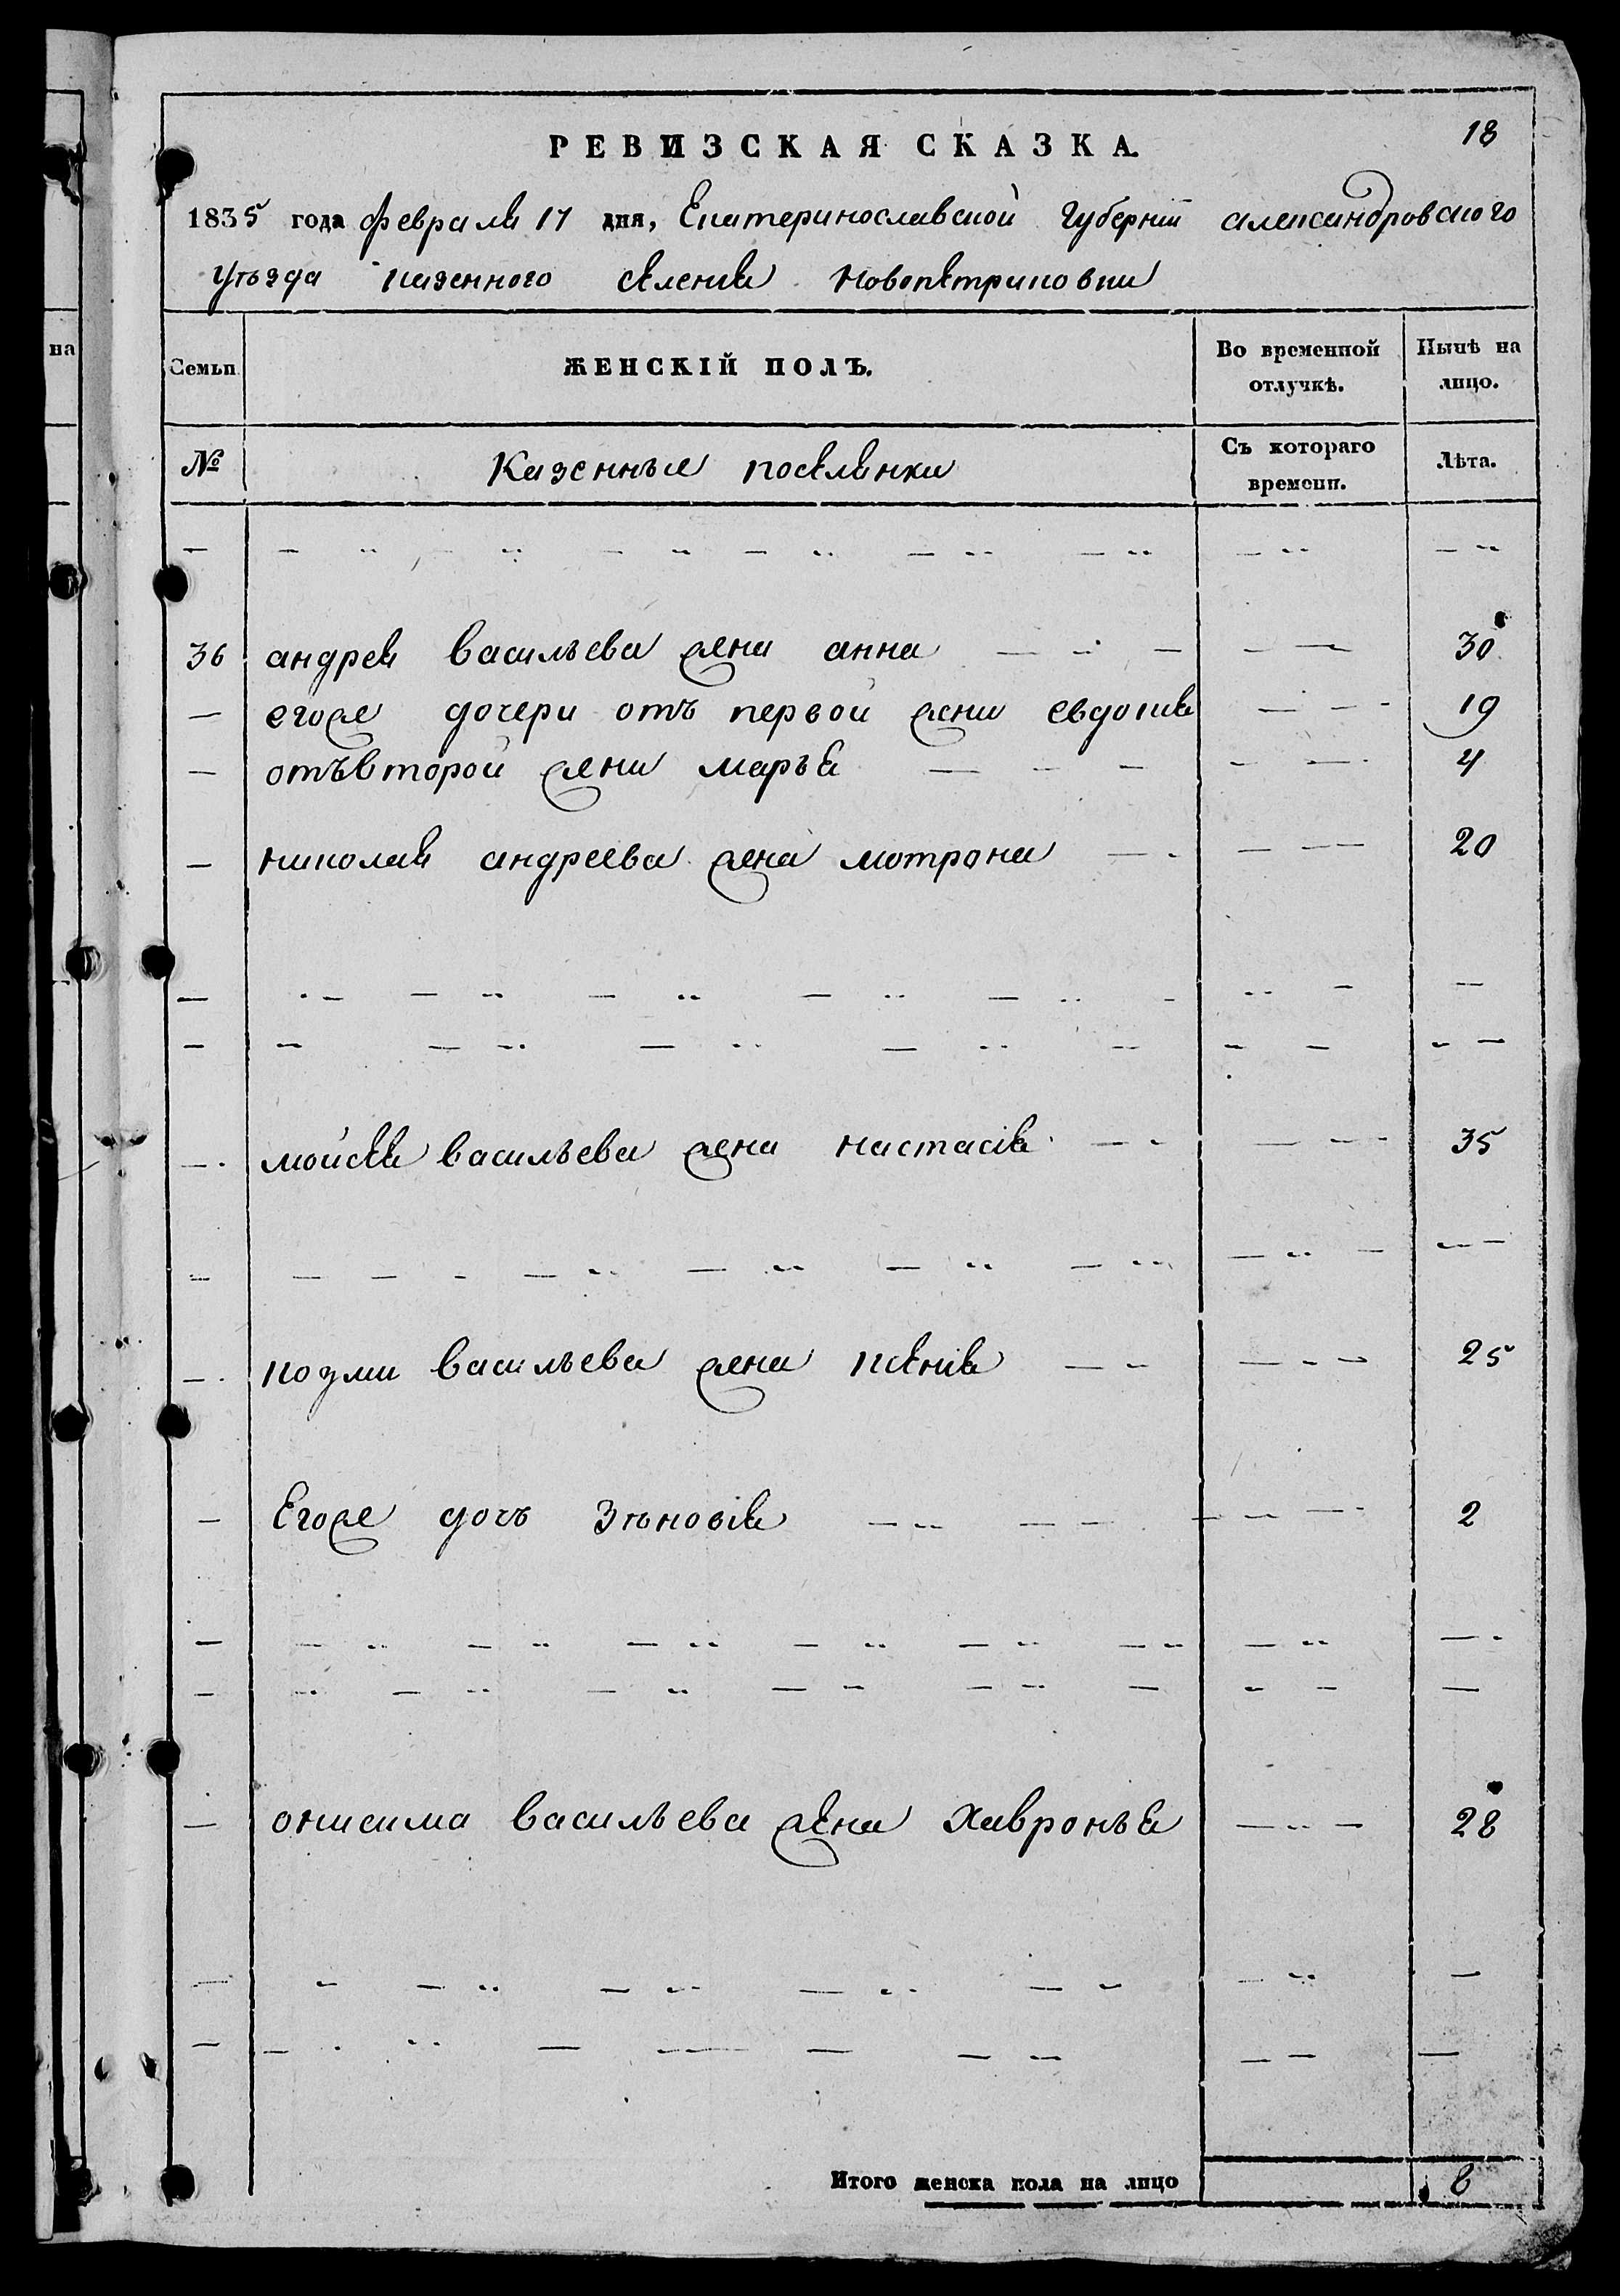 на
18
РЕВИЗСКАЯ СКАЗКА.
1835 года февраля 17 дня, Екатеринославской Губерніи александровского
уѣзда казенного селения Новопетриковки
Семьи
ЖЕНСКІЙ ПОЛЪ.
Во временной отлучкѣ.
Нынѣ на лицо.
№
Казенные поселянки
Съ котораго времени.
Лѣта.
36 андрея васильева жена анна 30
егоже дочери отъ первой жени евдокия 19
отъ второй жени марья 4
николая андреева жена мотрона 20
мойсея васильева жена настасія 35
козми васильева жена ксенія 25
Егоже дочь Зѣновія 2
онисима васильева жена Хавронья 28
Итого женска пола на лицо 8